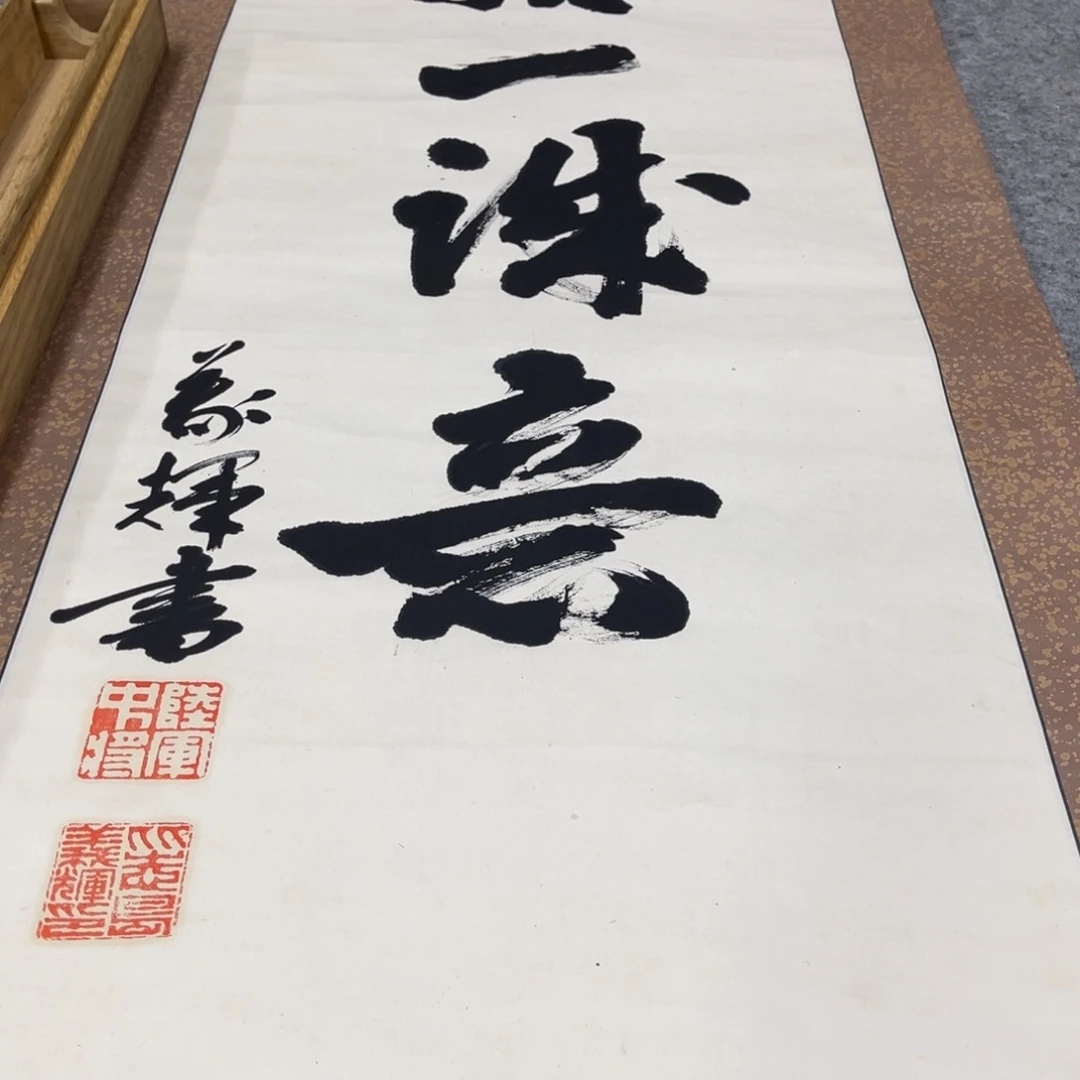 一誠意
義輝書
陸軍
中将
義輝印